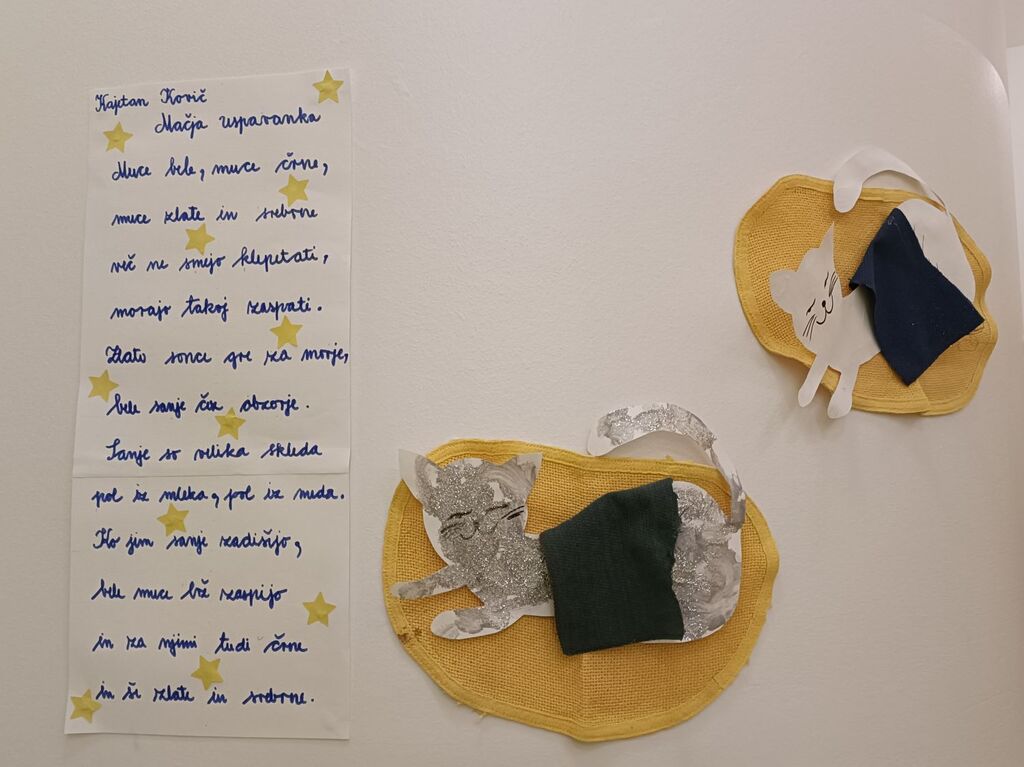 Kajetan Kovič
Mačja uspavanka
Muce bele, muce črne,
muce zlate in srebrne
več ne smejo klepetati,
morajo takoj zaspati.
Zlato sonce gre za morje,
bele sanje čez obzorje.
Sanje so velika skleda
pol iz mleka, pol iz meda.
Ko jim sanje zadišijo,
bele muce brž zaspijo
in za njimi tudi črne
in še zlate in srebrne.